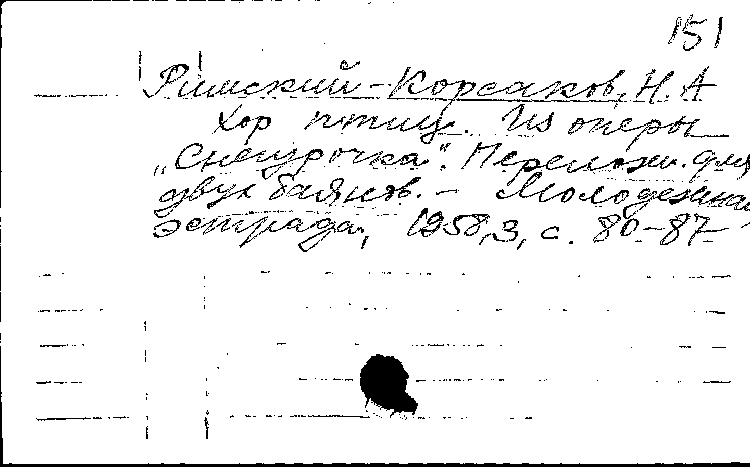 151
Римский-Корсаков, Н. А
Хор птиц. Из оперы
„Снегурочка". Перелож. для
двух баянов. - Молодежная
эстрада, 1958, 3, с. 80-87